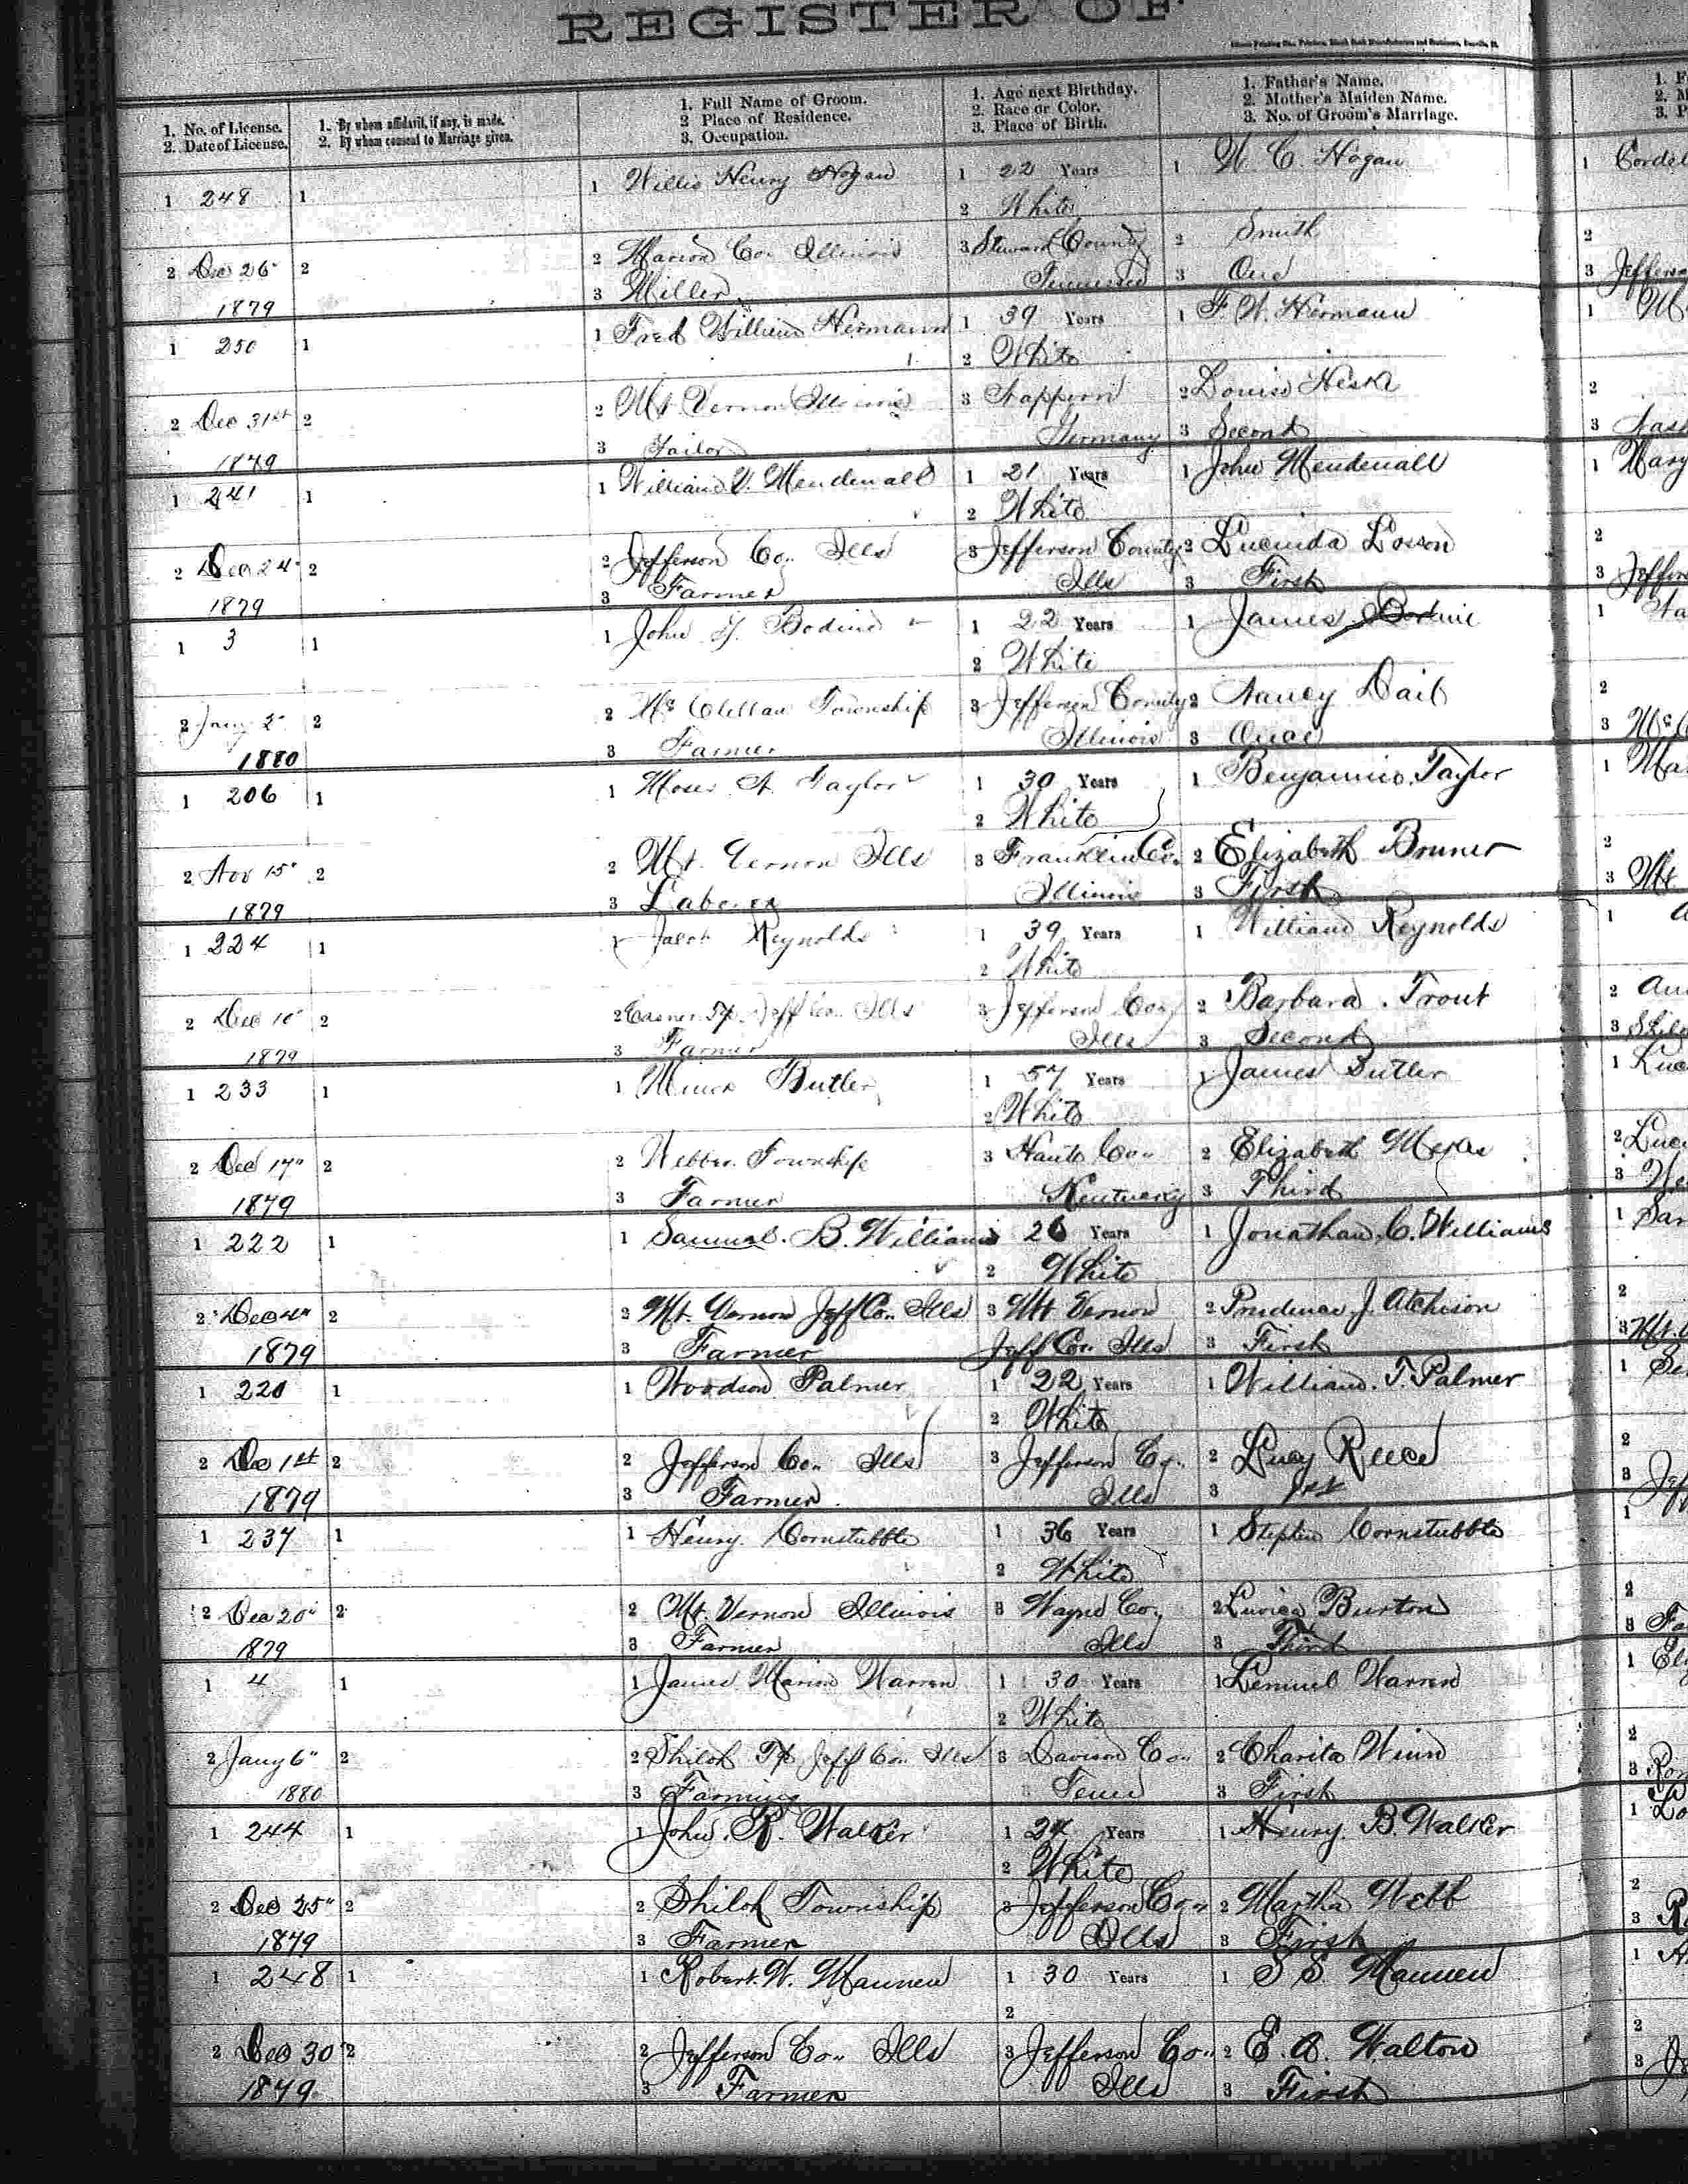 REGISTER OF
1. No. of License.
2. Date of License.
1. By whom affidavit, if any, is made.
2. By whom consent to Marriage given.
1. Full Name of Groom.
2 Place of Residence.
3. Occupation.
1. Age next Birthday.
2. Race or Color.
3. Place of Birth.
1. Father's Name.
2. Mother's Maiden Name.
3. No. of Groom's Marriage.
1 248 1 1 Willis Henry Hogan 1 22 Years 1 W. C. Hogan 1
2 White
2 Dec 26" 2 2 Marion Co. Illinois 3 Steward County 2 Smith 2
1879 3 Miller Tennessee 3 One 3
1 250 1 1 Fred William Hermann 1 39 Years 1 F. W. Hermann 1
2 White
2 Dec 31st 2 2 Mt. Vernon Illinois 3 2 Louisa 2
1879 3 Tailor Germany 3 Second 3
1 241 1 1 William V. Mendenall 1 21 Years 1 John Mendenall 1 Mary
2 White
2 Dec 24" 2 2 Jefferson Co. Ills 3 Jefferson County 2 Lucinda Losson 2
1879 3 Farmer Ills 3 First 3
1 3 1 1 John Y. Bodine 1 22 Years 1 James Bodine 1
2 White
2 Jany 2" 2 2 McClellan Township 3 Jefferson County 2 Nancy Dail 2
1880 3 Farmer Illinois 3 One 3
1 206 1 1 Moses A. Taylor 1 30 Years 1 Benjamin Taylor 1
2 White
2 Nov 15" 2 2 Mt. Vernon Ills 3 Franklin Co. 2 Elizabeth Bruner 2
1879 3 Laborer Illinois 3 First 3 Mt.
1 224 1 1 Jacob Reynolds 1 39 Years 1 William Reynolds 1
2 White
2 Dec 10" 2 2 Casner Tp. Jeff Co. Ills 3 Jefferson Co. 2 Barbara Trout 2
1879 3 Farmer Ills 3 Second 3
1 233 1 1 Butler 1 57 Years 1 James Butler 1
2 White
2 Dec 17" 2 2 Webber Township 3 Co. 2 Elizabeth 2
1879 3 Farmer Kentucky 3 Third 3
1 222 1 1 Samuel B. Williams 26 Years 1 Jonathan C. Williams 1
2 White
2 Dec 4" 2 2 Mt. Vernon Jeff Co. Ills 3 Mt Vernon 2 Prudence J. Atchison 2
1879 3 Farmer Jeff Co. Ills 3 First 3 Mt.
1 220 1 1 Woodson Palmer 1 22 Years 1 William T. Palmer 1
2 White
2 Dec 1st 2 2 Jefferson Co. Ills 3 Jefferson Co. 2 Lucy Reece 2
1879 3 Farmer Ills 3 1st 3
1 237 1 1 Henry Cornstubble 1 36 Years 1 Stephen Cornstubble 1
2 White
2 Dec 20" 2 2 Mt. Vernon Illinois 3 Wayne Co. 2 Burton 2
1879 3 Farmer Ills 3 Third 3
1 4 1 1 James Marion Warren 1 30 Years 1 Lemuel Warren 1
2 White
2 Jany 6" 2 2 Shiloh Tp Jeff Co. Ills 3 Davison Co. 2 Charita Winn 2
1880 3 Farming Tenn 3 First 3
1 244 1 1 John R. Walker 1 24 Years 1 Henry B. Walker 1
2 White
2 Dec 25" 2 2 Shiloh Township 3 Jefferson Co. 2 Martha Webb 2
1879 3 Farmer Ills 3 First 3
1 248 1 1 Robert W. Mannen 1 30 Years 1 S S Mannen 1
2
2 Dec 30 2 2 Jefferson Co. Ills 3 Jefferson Co. 2 E. A. Walton 2
1879 3 Farmer Ills 3 First 3